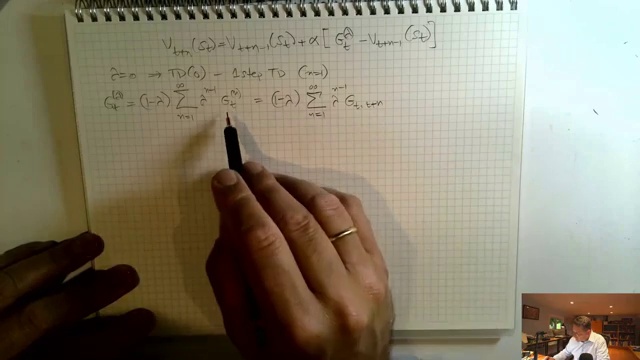 V_{t+n}(S_t) = V_{t+n-1}(S_t) + α [ G_t^λ - V_{t+n-1}(S_t) ]
λ=0 ⇒ TD(0) - 1 step TD (n=1)
G_t^{(λ)} = (1-λ) ∑_{n=1}^{∞} λ^{n-1} G_t^{(n)} = (1-λ) ∑_{n=1}^{∞} λ^{n-1} G_{t, t+n}